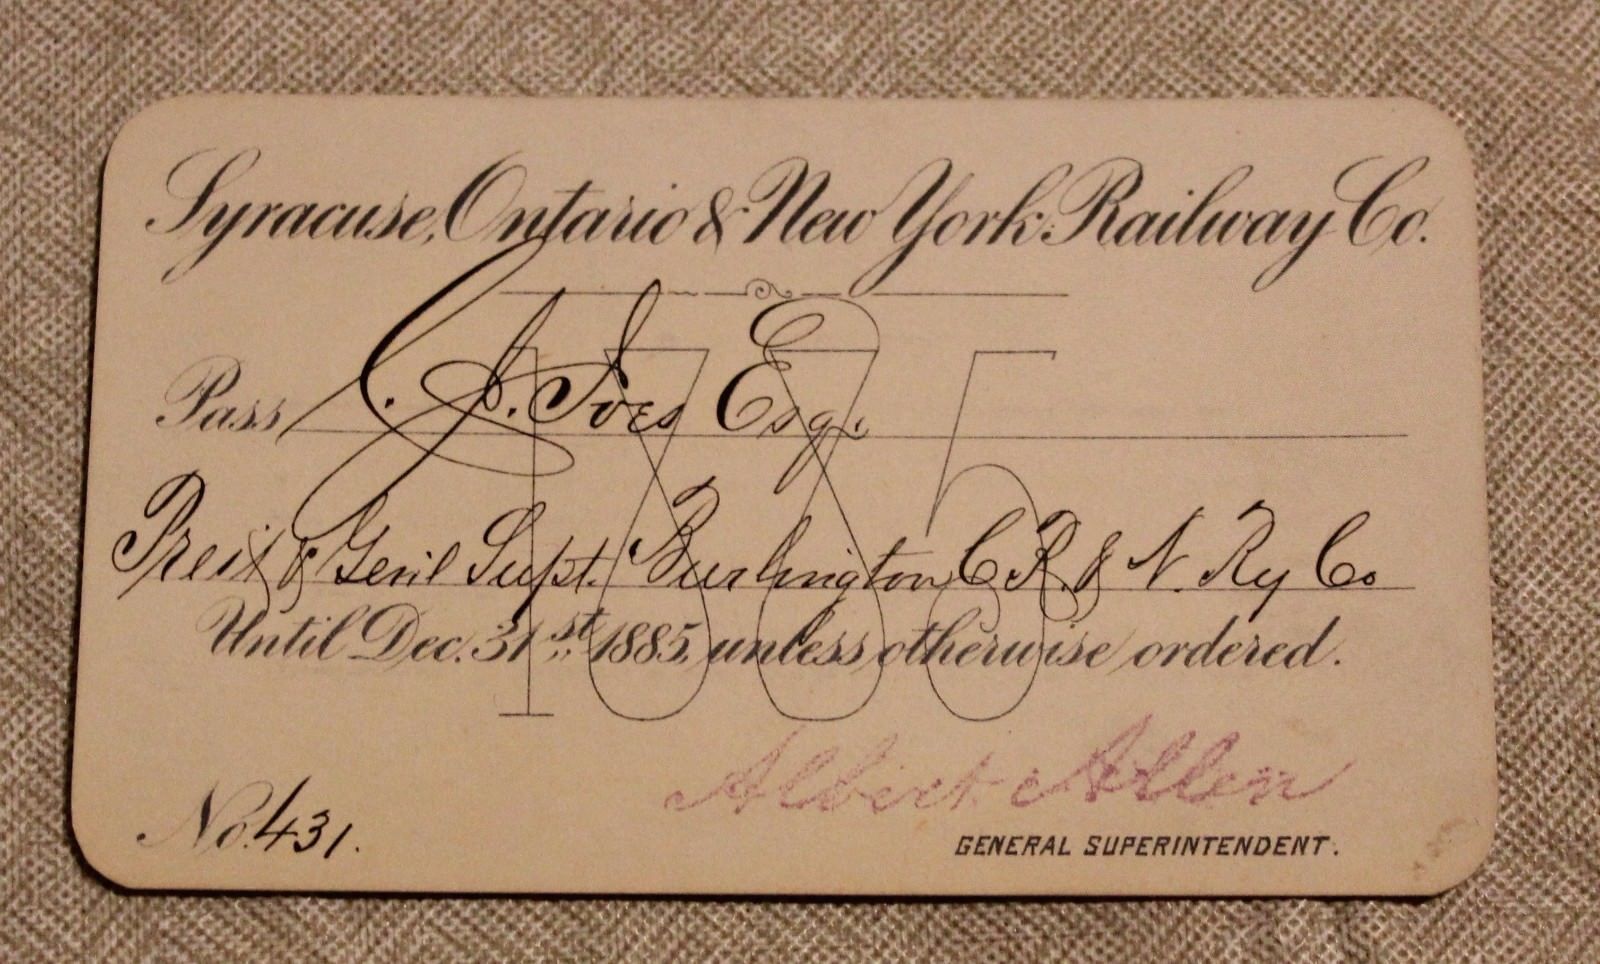 Syracuse, Ontario & New York Railway Co.
1885
Pass C. J. Ives Esq.
Prest & Genl Supt. Burlington C R. & N. Ry Co
Until Dec. 31st 1885, unless otherwise ordered.
Albert Allen
No. 431.
GENERAL SUPERINTENDENT.